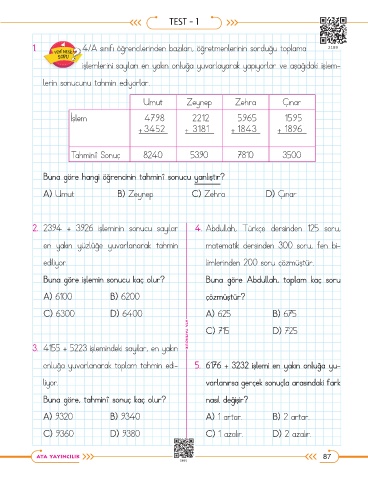 TEST - 1
2189
1. YENİ NESİL SORU 4/A sınıfı öğrencilerinden bazıları, öğretmenlerinin sorduğu toplama
işlemlerini sayıları en yakın onluğa yuvarlayarak yapıyorlar ve aşağıdaki işlem-
lerin sonucunu tahmin ediyorlar.
Umut Zeynep Zehra Çınar
İşlem 4798 2212 5965 1595
+ 3452 + 3181 + 1843 + 1896
Tahminî Sonuç 8240 5390 7810 3500
Buna göre hangi öğrencinin tahminî sonucu yanlıştır?
A) Umut B) Zeynep C) Zehra D) Çınar
2. 2394 + 3926 işleminin sonucu sayılar
en yakın yüzlüğe yuvarlanarak tahmin
ediliyor.
Buna göre işlemin sonucu kaç olur?
A) 6100 B) 6200
C) 6300 D) 6400
3. 4155 + 5223 işlemindeki sayılar, en yakın
onluğa yuvarlanarak toplam tahmin edi-
liyor.
Buna göre, tahminî sonuç kaç olur?
A) 9320 B) 9340
C) 9360 D) 9380
4. Abdullah, Türkçe dersinden 125 soru,
matematik dersinden 300 soru, fen bi-
limlerinden 200 soru çözmüştür.
Buna göre Abdullah, toplam kaç soru
çözmüştür?
A) 625 B) 675
C) 715 D) 725
5. 6176 + 3232 işlemi en yakın onluğa yu-
varlanırsa gerçek sonuçla arasındaki fark
nasıl değişir?
A) 1 artar. B) 2 artar.
C) 1 azalır. D) 2 azalır.
ATA YAYINCILIK
87